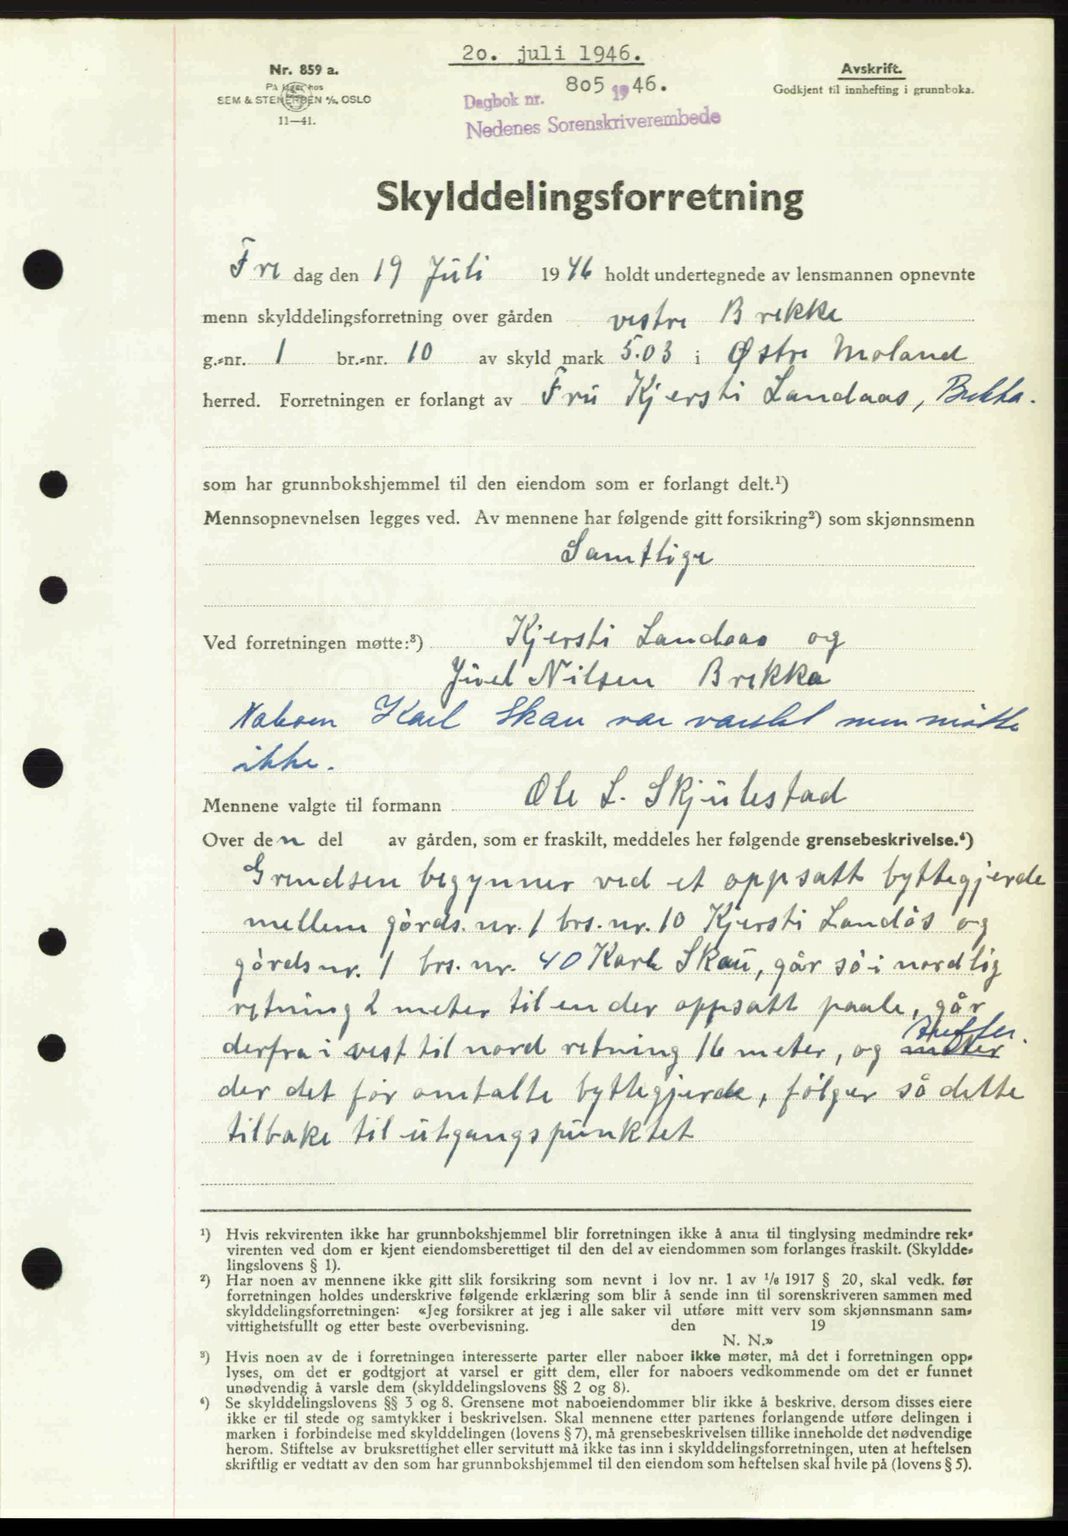 20. juli 1946.
Nr. 859 a.
På lager hos
SEM & STENERSEN A/S, OSLO
11—41.
Dagbok nr. 805 1946.
Nedenes Sorenskriverembede
Avskrift.
Godkjent til innhefting i grunnboka.
Skylddelingsforretning
Fre dag den 19 Juli 1946 holdt undertegnede av lensmannen opnevnte
menn skylddelingsforretning over gården vestre Brekke
g.-nr. 1 br.-nr. 10 av skyld mark 5.03 i Østre Moland
herred. Forretningen er forlangt av Fru Kjersti Landaas, Brekka.
som har grunnbokshjemmel til den eiendom som er forlangt delt.¹)
Mennsopnevnelsen legges ved. Av mennene har følgende gitt forsikring²) som skjønnsmenn
Samtlige
Ved forretningen møtte:³) Kjersti Landaas og
Juel Nilsen Brekka
Naboen Karl Skau var varslet men møtte
ikke.
Mennene valgte til formann Ole L. Skjulestad
Over den del av gården, som er fraskilt, meddeles her følgende grensebeskrivelse.⁴)
Grendsen begynner ved et oppsatt byttegjerde
mellem gårds. nr. 1 brs. nr. 10 Kjersti Landås og
gårds nr. 1 brs. nr. 40 Karl Skau, går så i nordlig
retning 2 meter til en der oppsatt paale, går
derfra i vest til nord retning 16 meter, og treffer.
der det før omtalte byttegjerde, følger så dette
tilbake til utgangspunktet
¹) Hvis rekvirenten ikke har grunnbokshjemmel blir forretningen ikke å anta til tinglysing medmindre rek-
virenten ved dom er kjent eiendomsberettiget til den del av eiendommen som forlanges fraskilt. (Skyldde-
lingslovens § 1).
²) Har noen av mennene ikke gitt slik forsikring som nevnt i lov nr. 1 av 1/6 1917 § 20, skal vedk. før
forretningen holdes underskrive følgende erklæring som blir å sende inn til sorenskriveren sammen med
skylddelingsforretningen: «Jeg forsikrer at jeg i alle saker vil utføre mitt verv som skjønnsmann sam-
vittighetsfullt og etter beste overbevisning. den 19
N. N.»
³) Hvis noen av de i forretningen interesserte parter eller naboer ikke møter, må det i forretningen opp-
lyses, om det er godtgjort at varsel er gitt dem, eller for naboers vedkommende om det er funnet
unødvendig å varsle dem (skylddelingslovens §§ 2 og 8).
⁴) Se skylddelingslovens §§ 3 og 8. Grensene mot naboeiendommer blir ikke å beskrive, dersom disses eiere
ikke er til stede og samtykker i beskrivelsen. Skal mennene etter partenes forlangende utføre delingen i
marken i forbindelse med skylddelingen (lovens § 7), må grensebeskrivelsen tillike inneholde det nødvendige
herom. Stiftelse av bruksrettighet eller servitutt må ikke tas inn i skylddelingsforretningen, uten at heftelsen
skriftlig er vedtatt av den som har grunnbokshjemmel til den eiendom som heftelsen skal hvile på (lovens § 5).